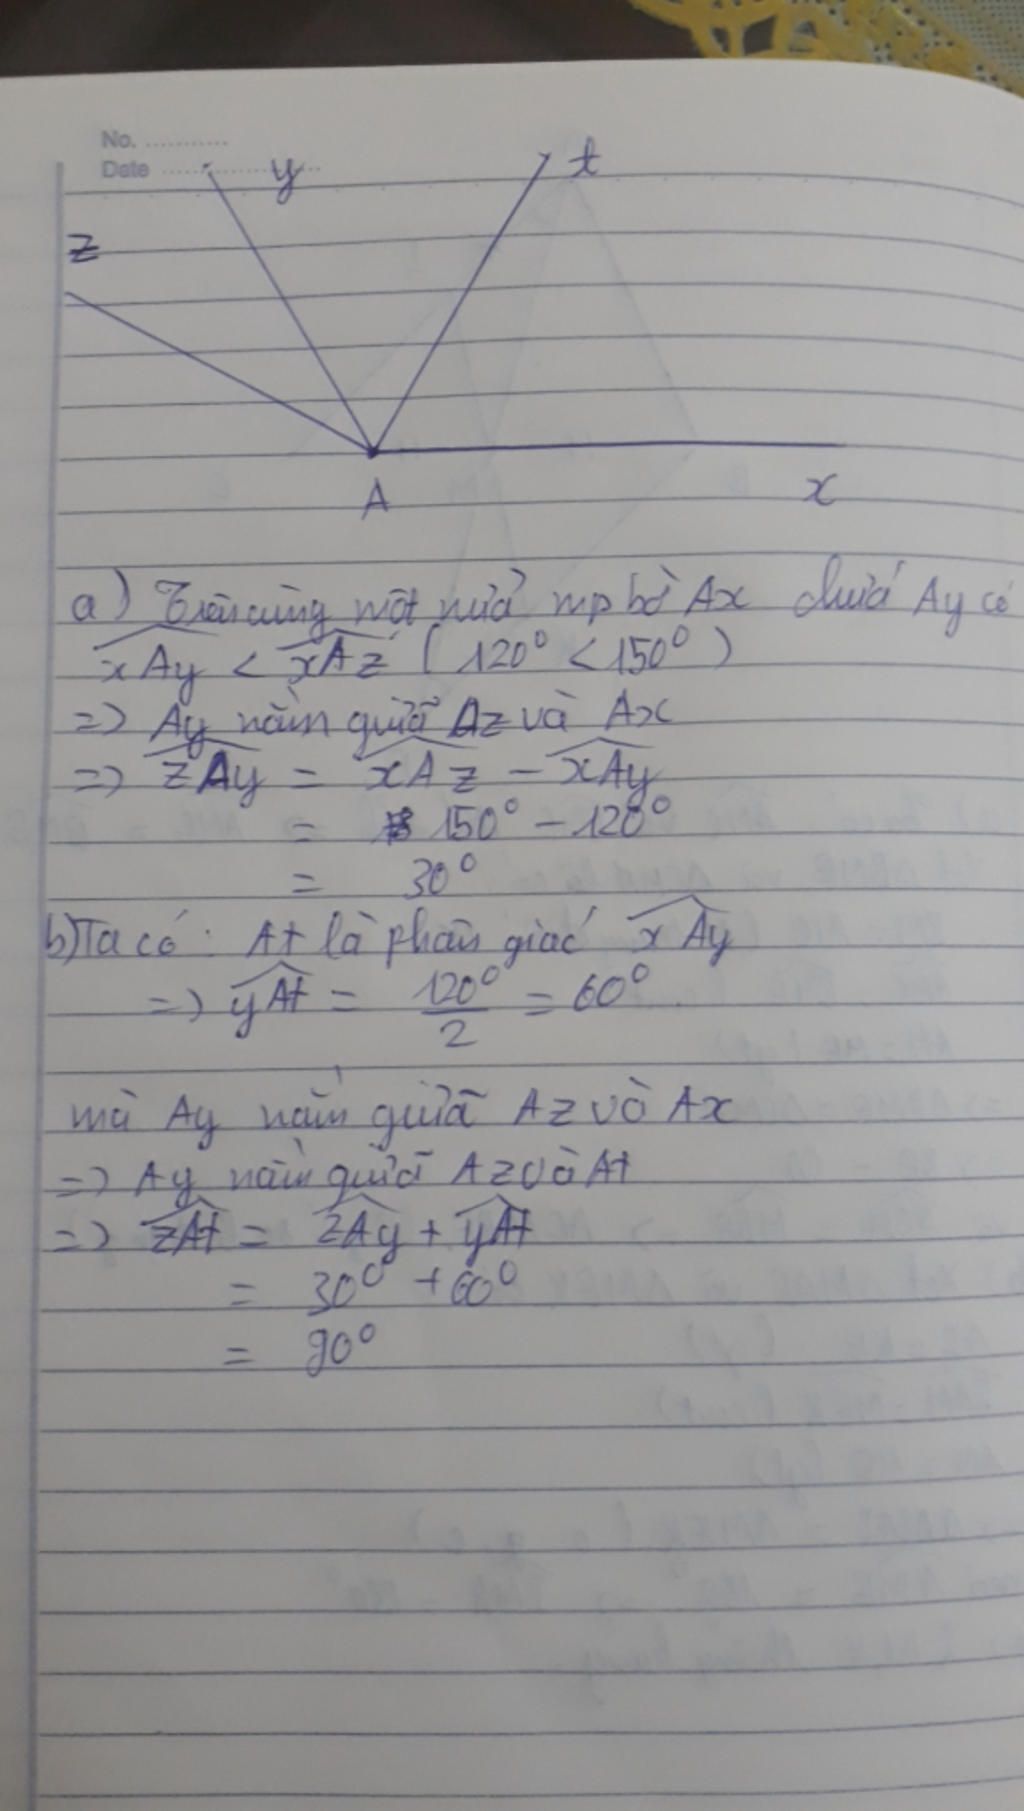 No. ...........
Date ....................
y
t
z
A
x
a) Trên cùng một nửa mp bờ Ax chứa Ay có
xAy < xAz (120° < 150°)
=> Ay nằm giữa Az và Ax
=> zAy = xAz - xAy
= 150° - 120°
= 30°
b) Ta có: At là phân giác xAy
=> yAt = 120°/2 = 60°
mà Ay nằm giữa Az và Ax
=> Ay nằm giữa Az và At
=> zAt = zAy + yAt
= 30° + 60°
= 90°